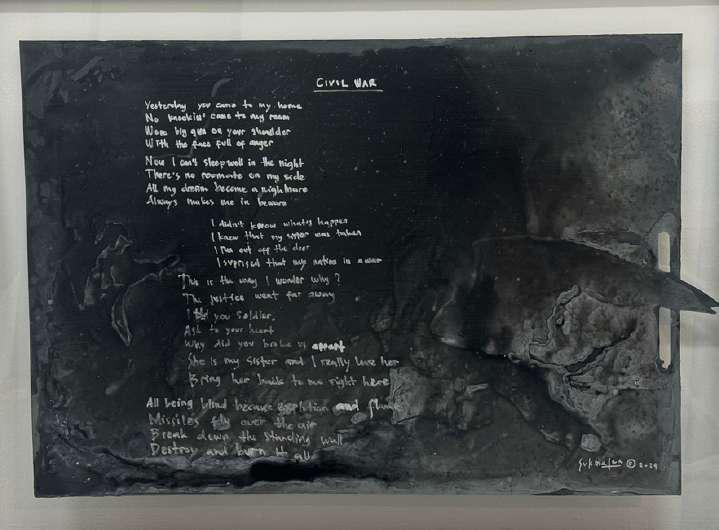 CIVIL WAR
Yesterday you came to my home
No knockin' came to my room
Wore big gun on your shoulder
With the face full of anger
Now I can't sleep well in the night
There's no roommate on my side
All my dream become a nighmare
Always makes me in beware
I didn't know what is happen
I knew that my sister was taken
I run out off the door
I suprised that my nation in a war
This is the way I wonder why?
The justice went far away
I you soldier,
Ask to your heart
Why did you broke us apart
She is my sister and I really love her
Bring her back to me right here
All being blind because explotion and flame
Missiles fly over the air
Break down the standing wall
Destroy and burn it all